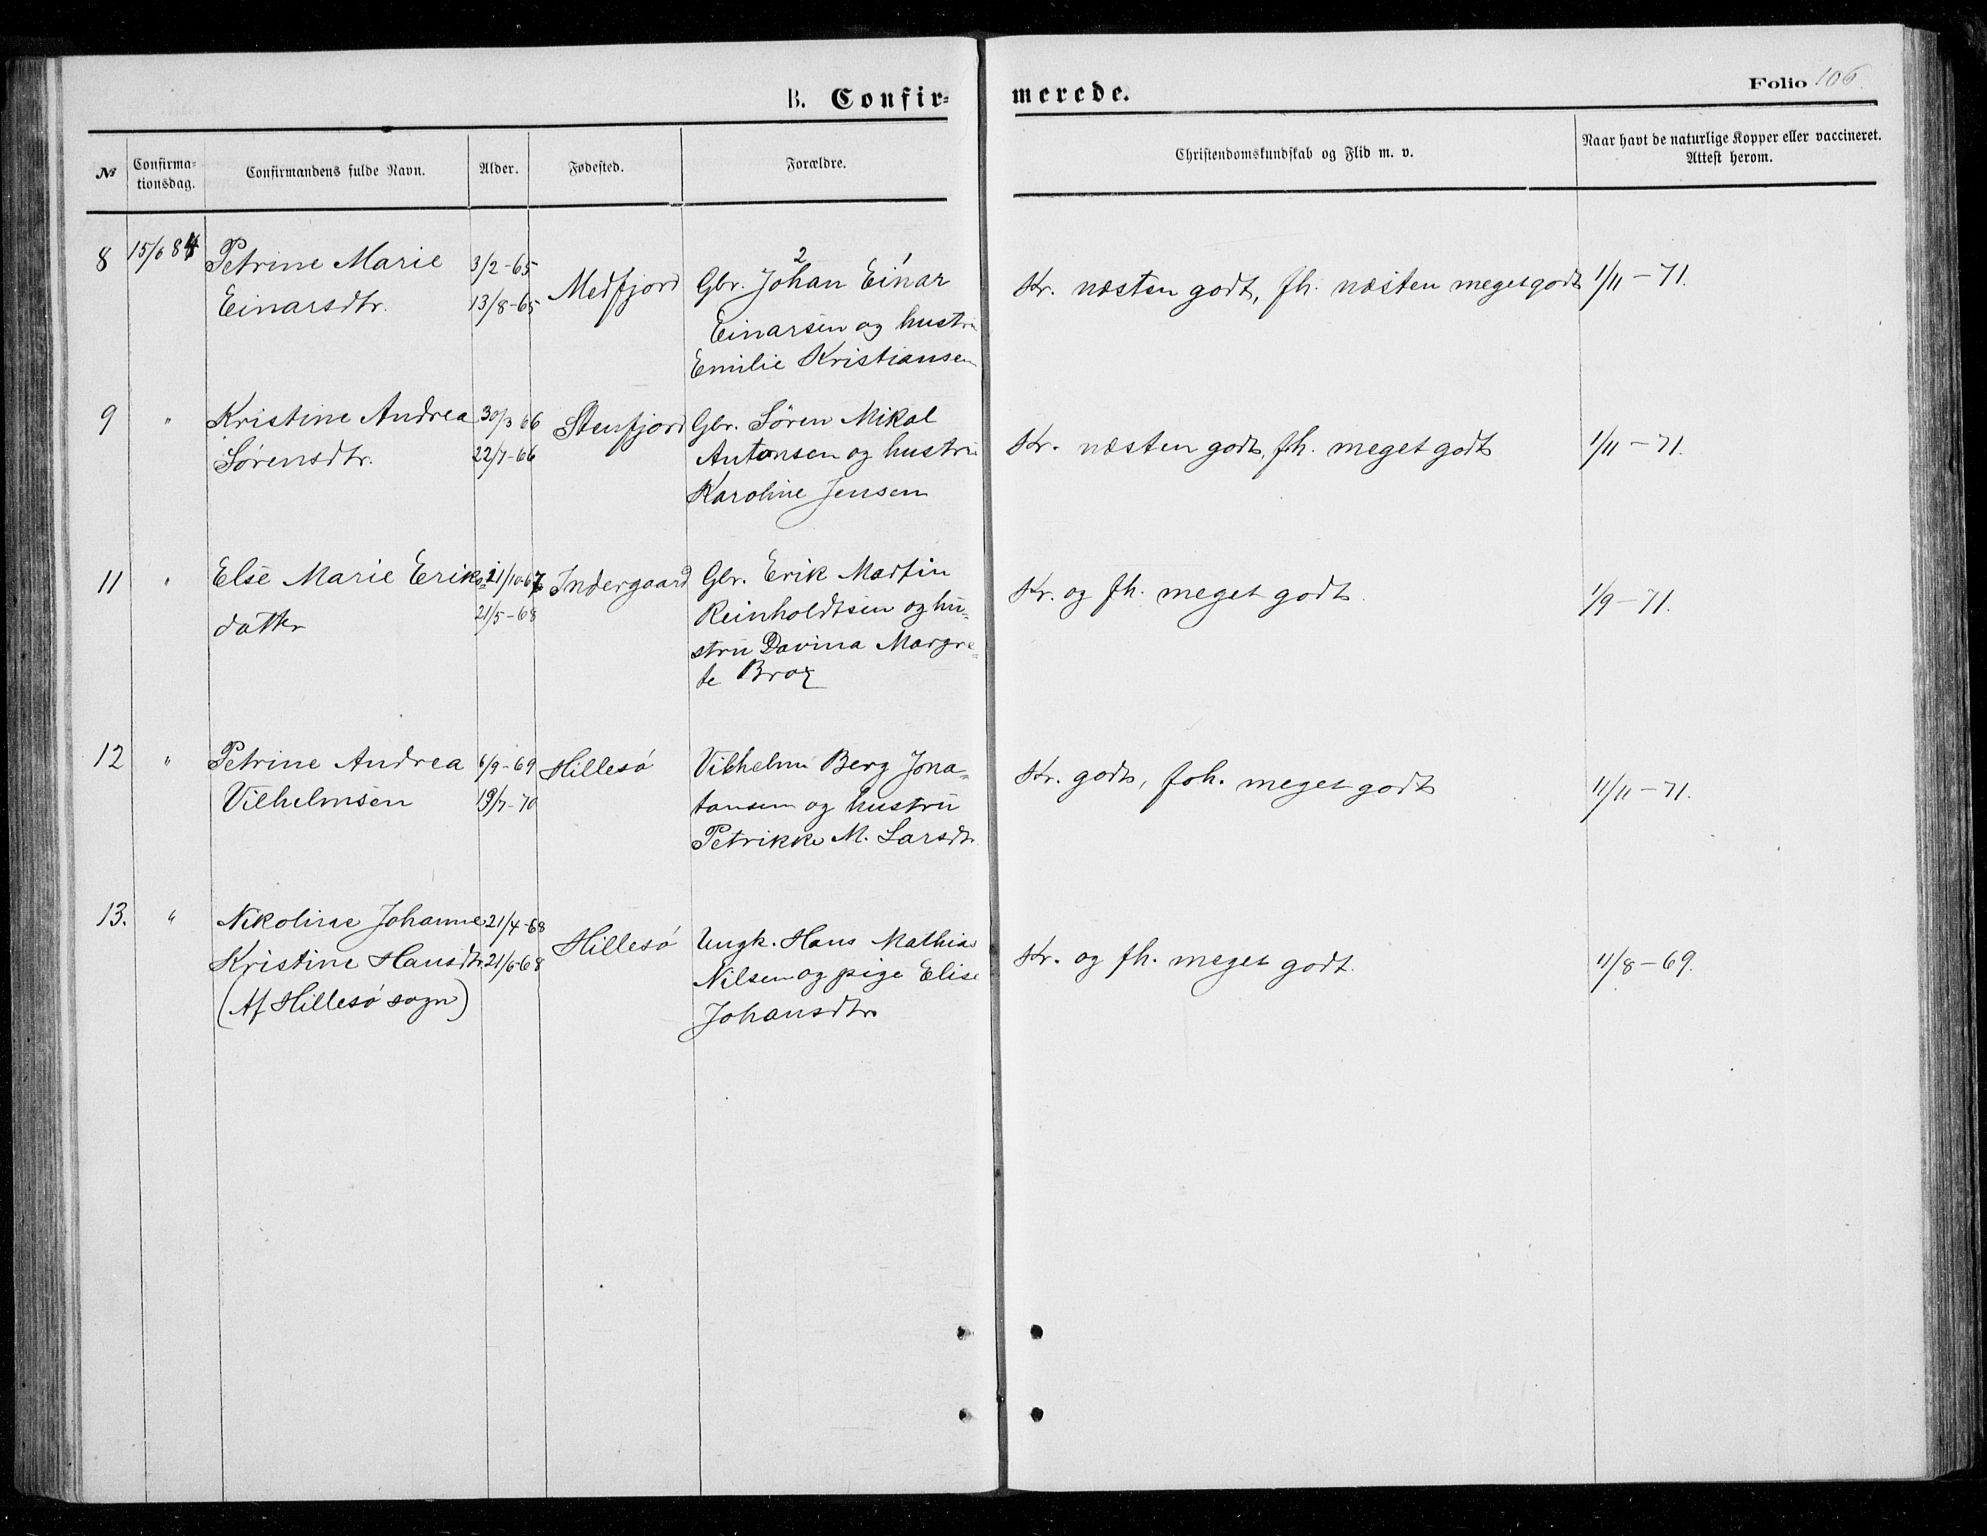 B. Confir-
merede.
Folio 106.
№
Confirma-
tionsdag.
Confirmandens fulde Navn.
Alder.
Fødested.
Forældre.
Christendomskundskab og Flid m. v.
Naar havt de naturlige Kopper eller vaccineret.
Attest herom.
8
15/6 84
Petrine Marie
Einarsdtr.
3/2-65
13/8-65
Medfjord
2 1
Gbr. Johan Einar
Einarsen og hustru
Emilie Kristiansen
Kr. næsten godt, fh. næsten meget godt
1/11-71.
9
"
Kristine Andrea
Sørensdtr.
30/3 66
22/7-66
Stenfjord
Gbr. Søren Mikal
Antonsen og hustru
Karoline Jensen
Kr. næsten godt, fh. meget godt
1/11-71.
11
"
Else Marie Eriks-
datter
21/5-68
Indergaard
Gbr. Erik Martin
Reinholdtsen og hu-
stru Davina Margre-
te
Kr. og fh. meget godt.
1/9-71.
12
"
Petrine Andrea
Vilhelmsen
6/9-69
19/7-70
Hillesø
Vilhelm Berg Jona-
tansen og hustru
Petrikke M. Larsdtr.
Kr. godt, foh. meget godt
11/11-71.
13.
"
Nikoline Johanne
Kristine Hansdtr.
(Af Hillesø sogn)
21/4-68
21/6-68
Hillesø
Ungk. Hans Mathias
Nilsen og pige Elise
Johansdtr.
Kr. og fh. meget godt.
11/8-69.